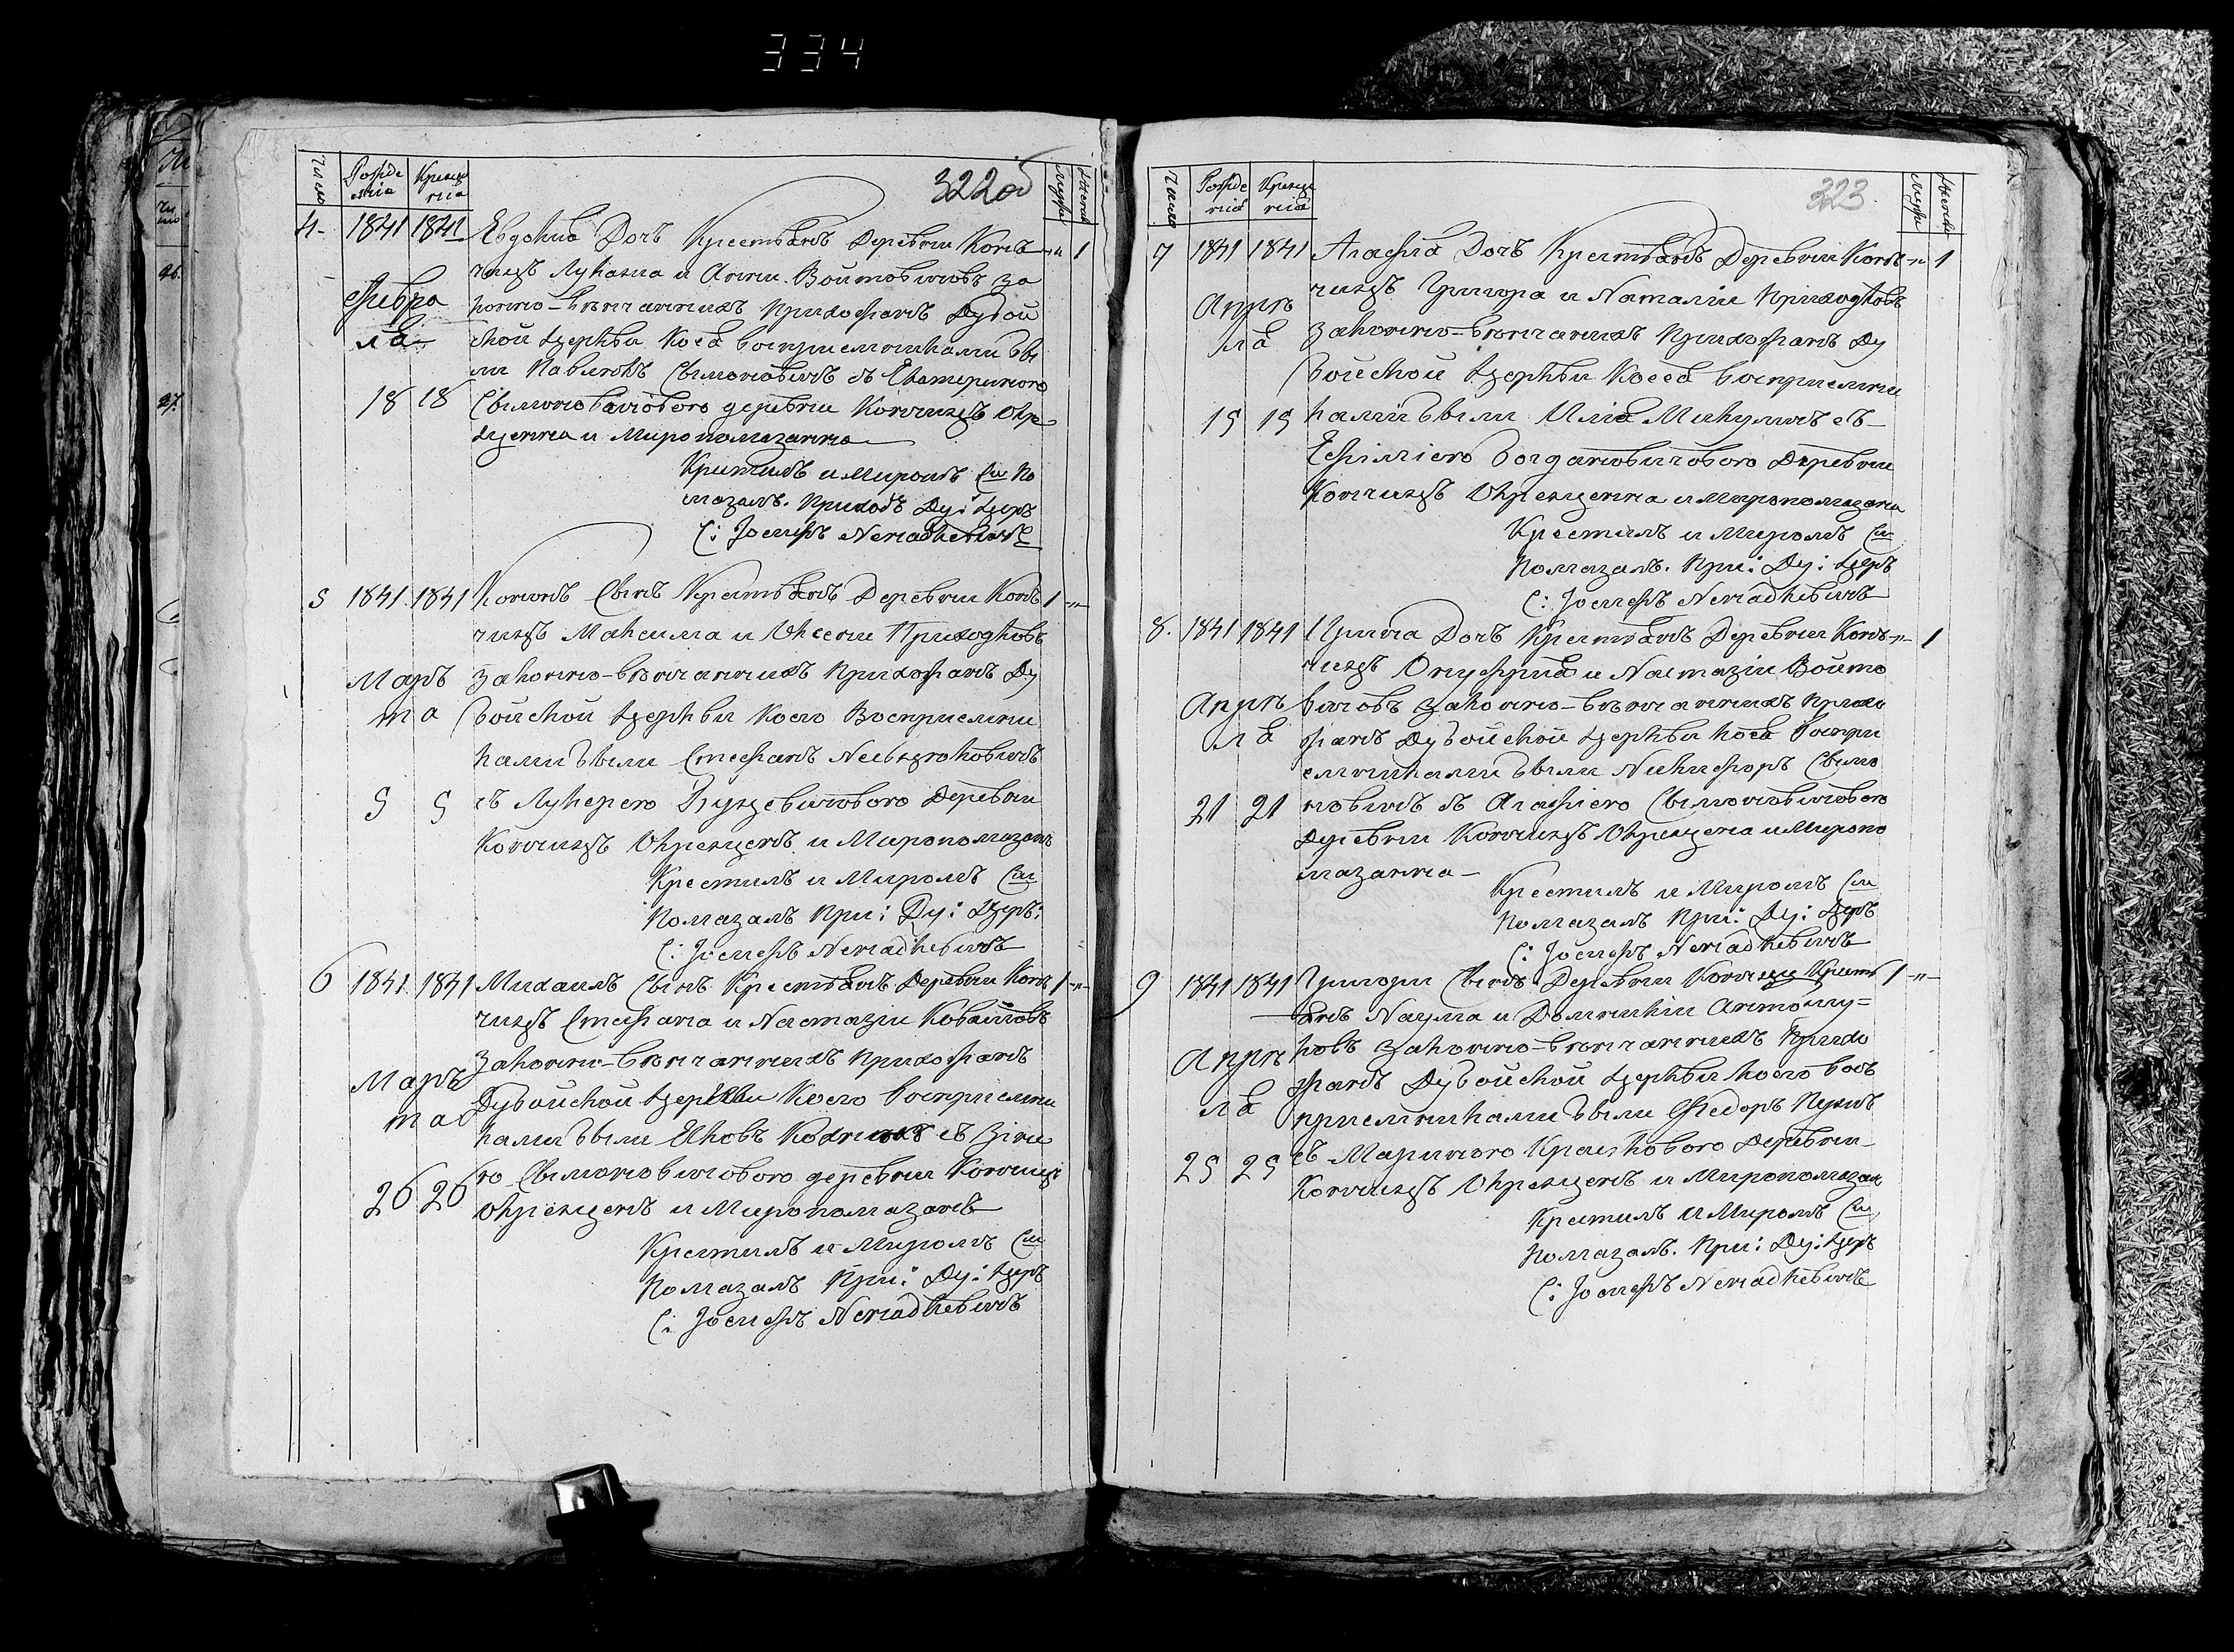 334
322об
Число Рожде ния Креще ния Мужск Женск
4 1841 1841 Евдокия Дочь Крестьянъ Деревни Конь „ 1
чицъ Лукаша и Анны Войтовичовъ за
Февра
конно-вѣнчанныхъ Прихожанъ Дубой
ля
ской Церкви Коея восприемниками бы
ли Павлюкъ Сымоновичъ съ Екатериною
18 18 Сымоновичовою деревни Кончицъ Окре
щенна и Миропомазанна
Крестилъ и Миромъ Свя
Помазалъ. Приходъ Ду: Церъ
С: Іосифъ Неначкевичъ
5 1841 1841 Кононъ Сынъ Крестьянъ Деревни Конь 1 „
чицъ Максима и Оксени Приходковъ
Мар
законно-вѣнчанныхъ Прихожанъ Ду
та
бойской Церкви Коего Восприемни
ками были Стефанъ
5 5 съ Лукерею Деревни
Кончицъ Окрещенъ и Миропомазанъ
Крестилъ и Миромъ Свя
Помазалъ При: Ду: Церъ:
С: Іосифъ Неначкевичъ
6 1841 1841 Михаилъ Сынъ Крестьянъ Деревни Конь 1 „
чицъ Стефана и Настазіи
законно-вѣнчанныхъ Прихожанъ
Мар
Дубойской Церкви Коего восприемни
та
ками были Яковъ съ Зіно
26 26 ю Сымоновичовою деревни Кончицъ
окрещенъ и Миропомазанъ
Крестилъ и Миромъ Свя
Помазалъ При: Ду: Церъ
С: Іосифъ Неначкевичъ
323
Число Рожде ния Креще ния Мужск Женск
7 1841 1841 Агафія Дочь Крестьянъ Деревни Конь „ 1
чицъ Григора и Наталіи Приходковъ
Апрѣ
законно-вѣнчанныхъ Прихожанъ Ду
ля
бойской Церкви Коея восприемни
15 15 ками были Илія Микуличъ съ
Ефиміею Богдановичовою Деревни
Кончицъ Окрещенна и миропомазана
Крестилъ и Миромъ Свя
Помазалъ. При: Ду: Церъ
С: Іосифъ Неначкевичъ
8. 1841 1841 Ирина Дочь Крестьянъ Деревни Конь „ 1
чицъ Онуфрия и Настазіи Войто
Апрѣ
вичовъ законно-вѣнчанныхъ Прихо
ля
жанъ Дубойской Церкви коея воспри
емниками были Никифоръ Сымо
21 21 новичъ съ Агафіею Сымоновичовою
Деревни Кончицъ Окрещена и Миропо
мазанна
Крестилъ и Миромъ Свя
Помазалъ При: Ду: Церъ
С: Іосифъ Неначкевичъ
9 1841 1841 Григори Сынъ Деревни Кончицъ Кресть 1 „
янъ Наума и Домникіи Антому=
Апрѣ
ковъ законно-вѣнчанныхъ Прихо
жанъ Дубойской Церкви коего вос
ля
приемниками были Федоръ
25 25 съ Мариною Деревни
Кончицъ Окрещенъ и Миропомазан
Крестилъ и Миромъ Свя
Помазалъ. При: Ду: Церъ
С: Іосифъ Неначкевичъ